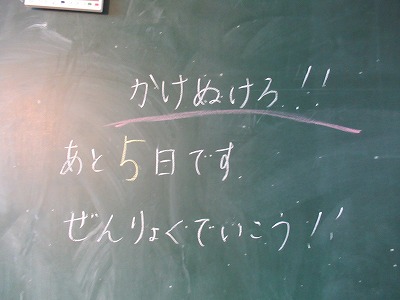 かけぬけろ!!
あと5日です
ぜんりょくでいこう!!